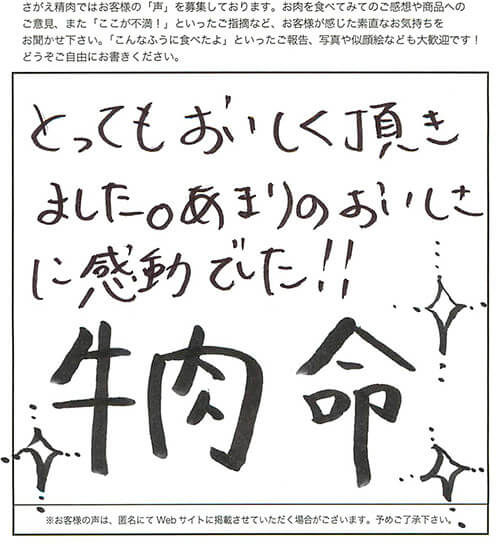 さがえ精肉ではお客様の「声」を募集しております。お肉を食べてみてのご感想や商品への
ご意見、また「ここが不満！」といったご指摘など、お客様が感じた素直なお気持ちを
お聞かせ下さい。「こんなふうに食べたよ」といったご報告、写真や似顔絵なども大歓迎です！
どうぞご自由にお書きください。
とってもおいしく頂き
ました。あまりのおいしさ
に感動でした!!
牛肉 命
※お客様の声は、匿名にてWebサイトに掲載させていただく場合がございます。予めご了承下さい。